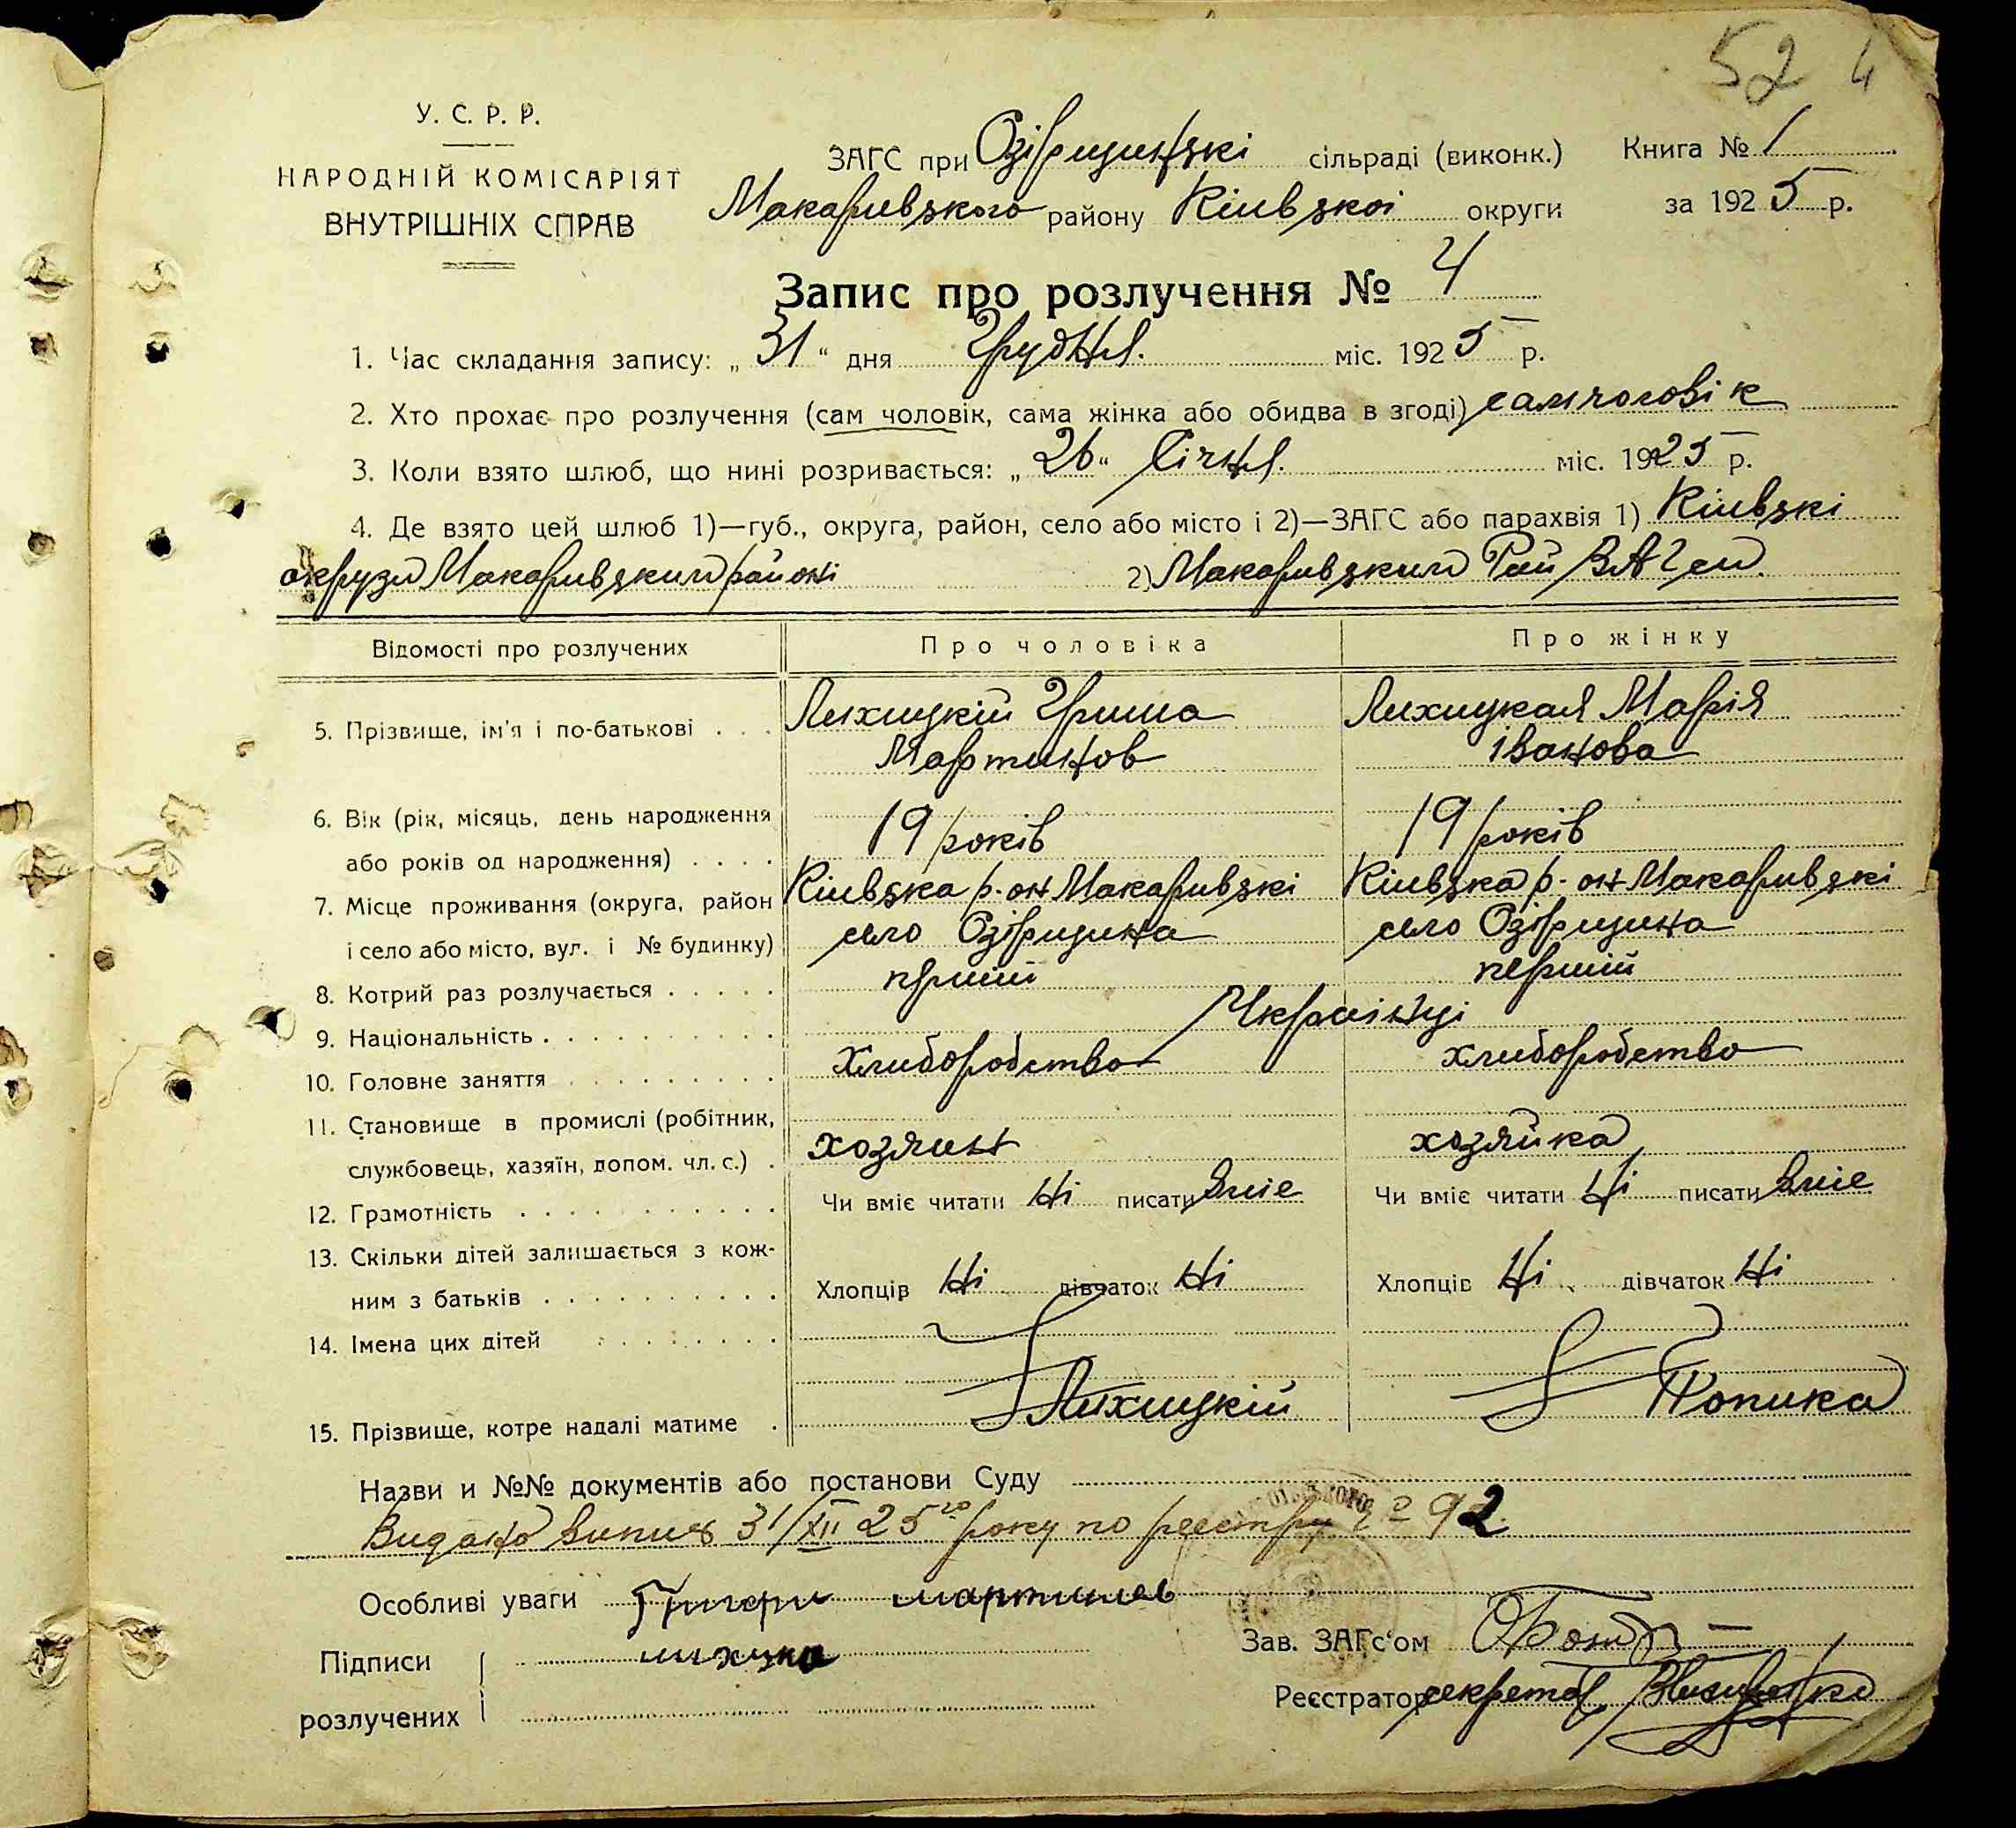 52 4
У. С. Р. Р.
НАРОДНІЙ КОМІСАРІЯТ
ВНУТРІШНІХ СПРАВ
ЗАГС при Озірщинскі сільраді (виконк.) Книга № 1
Макаривзкого району Кіивзкоі округи за 1925 р.
Запис про розлучення № 4
1. Час складання запису: „31“ дня Грудня. міс. 1925 р.
2. Хто прохає про розлучення (сам чоловік, сама жінка або обидва в згоді) сам чоловік
3. Коли взято шлюб, що нині розривається: „26“ Січня. міс. 1925 р.
4. Де взято цей шлюб 1)—губ., округа, район, село або місто і 2)—ЗАГС або парахвія 1) Кіивзкі
округи Макаривзким районі 2) Макаривзким Рай
Відомості про розлучених Про чоловіка Про жінку
5. Прізвище, ім'я і по-батькові . . . Лихицкій Гриша Лихицкая Марія
Мартинов Іванова
6. Вік (рік, місяць, день народження
або років од народження) . . . . 19 років 19 років
7. Місце проживання (округа, район Кіивзка р-он Макаривзкі Кіивзка р-он Макаривзкі
і село або місто, вул. і № будинку) село Озірщина село Озірщина
8. Котрий раз розлучається . . . . . перший перший
9. Національність . . . . . . . . . . Украінці
10. Головне заняття . . . . . . . . . Хлиборобство хлиборобство
11. Становище в промислі (робітник,
службовець, хазяїн, допом. чл. с.) . хозяин хозяйка
12. Грамотність . . . . . . . . . . . Чи вміє читати Ні писати Вміе Чи вміє читати Ні писати Вміе
13. Скільки дітей залишається з кож-
ним з батьків . . . . . . . . . . Хлопців Ні дівчаток Ні Хлопців Ні дівчаток Ні
14. Імена цих дітей . . . . . . . .
15. Прізвище, котре надалі матиме . Лихицкій Копика
Назви и №№ документів або постанови Суду
Видано випис 31/XII 25го року по реестру № 92
Особливі уваги Григори мартинов
Підписи лихцки Зав. ЗАГс'ом
розлучених Реєстратор секретар